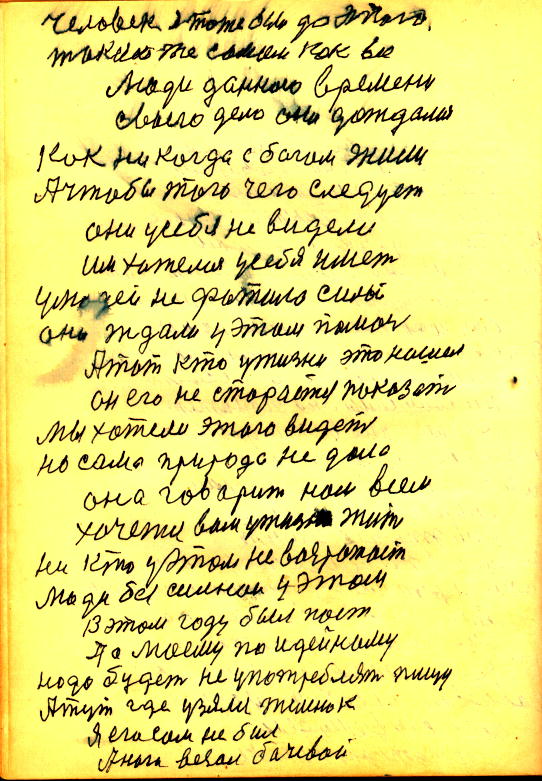 человек я тоже был до этого
такий же самый как все
Люди данного времени
своего дело они дождался
Как никогда с богом жили
А чтобы того чего следует
они у себя не видели
им хотелся у себя имет
у людей не фатило силы
они ждали у этом помоч
А тот кто у жизни это нашел
он его не старается показат
Мы хотели этого видет
но сама природа не дала
она говарит нам всем
хочется вам у жизни жит
ни кто у этом не возрожает
Люди бес силной у этом
В этом году был пост
Па моему па идейному
надо будет не употреблят пищу
А тут где узяли
Я его сам не был
А нога